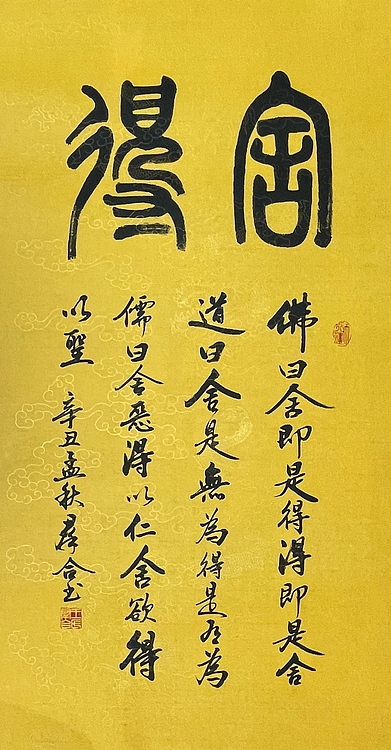 舍得
佛曰舍即是得得即是舍
道曰舍是無為得是有為
儒曰舍惡得以仁舍欲得
以聖 辛丑孟秋